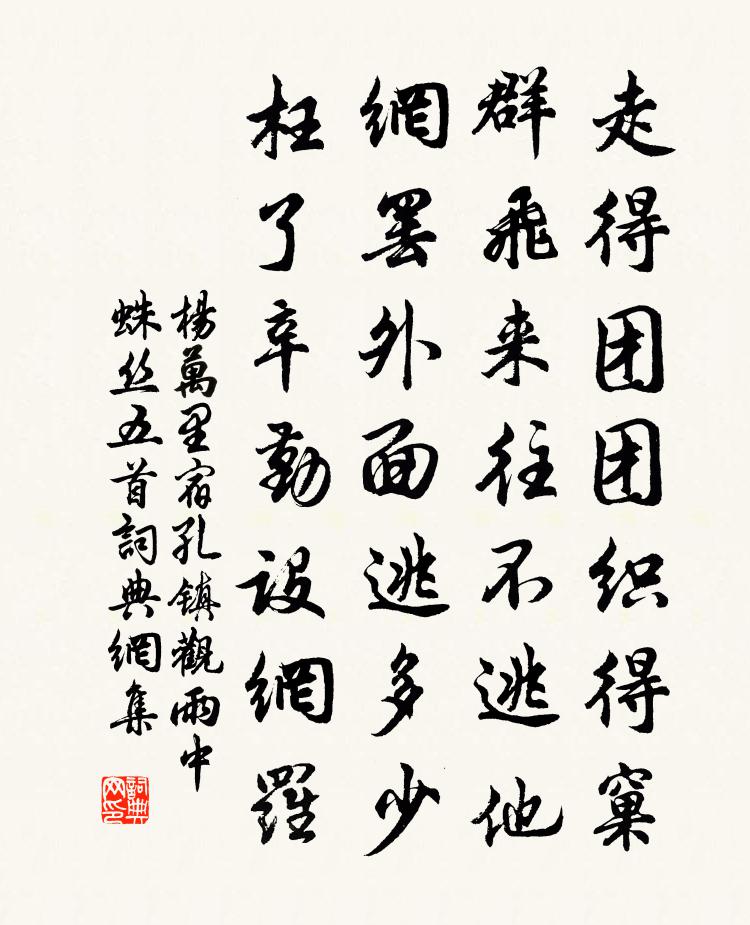 走得团团织得窠
群飛来往不逃他
網罢外面逃多少
枉了辛勤設網羅
楊萬里宿孔镇觀雨中
蛛丝五首詞典網集
詞典
网印